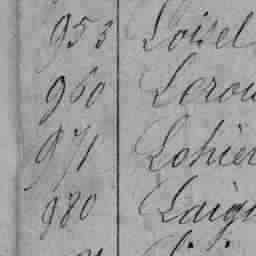 953 Loisel
960 Lerou
971 Lohier
980 Laign